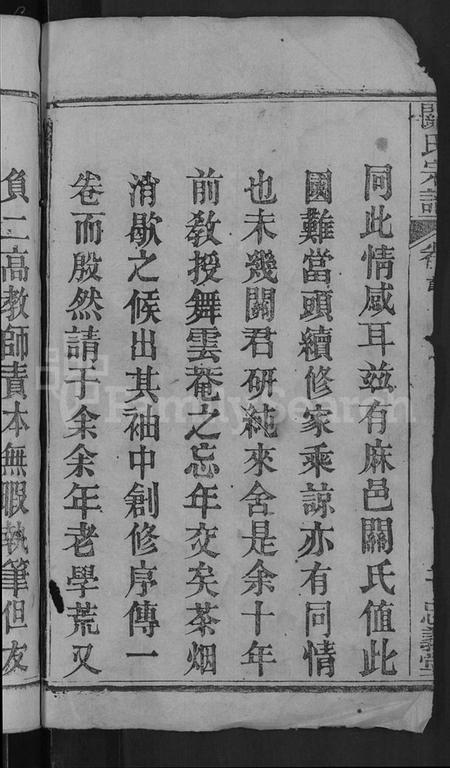 關氏宗譜
卷首
忠義堂
同此情感耳玆有麻邑關氏值此
國難當頭續修家乘諒亦有同情
也未幾關君研純來舍是余十年
前教授舞雲菴之忘年交矣茶烟
消歇之候出其袖中創修序傳一
卷而殷然請于余余年老學荒又
負二高教師責本無暇執筆但友
FamilySearch